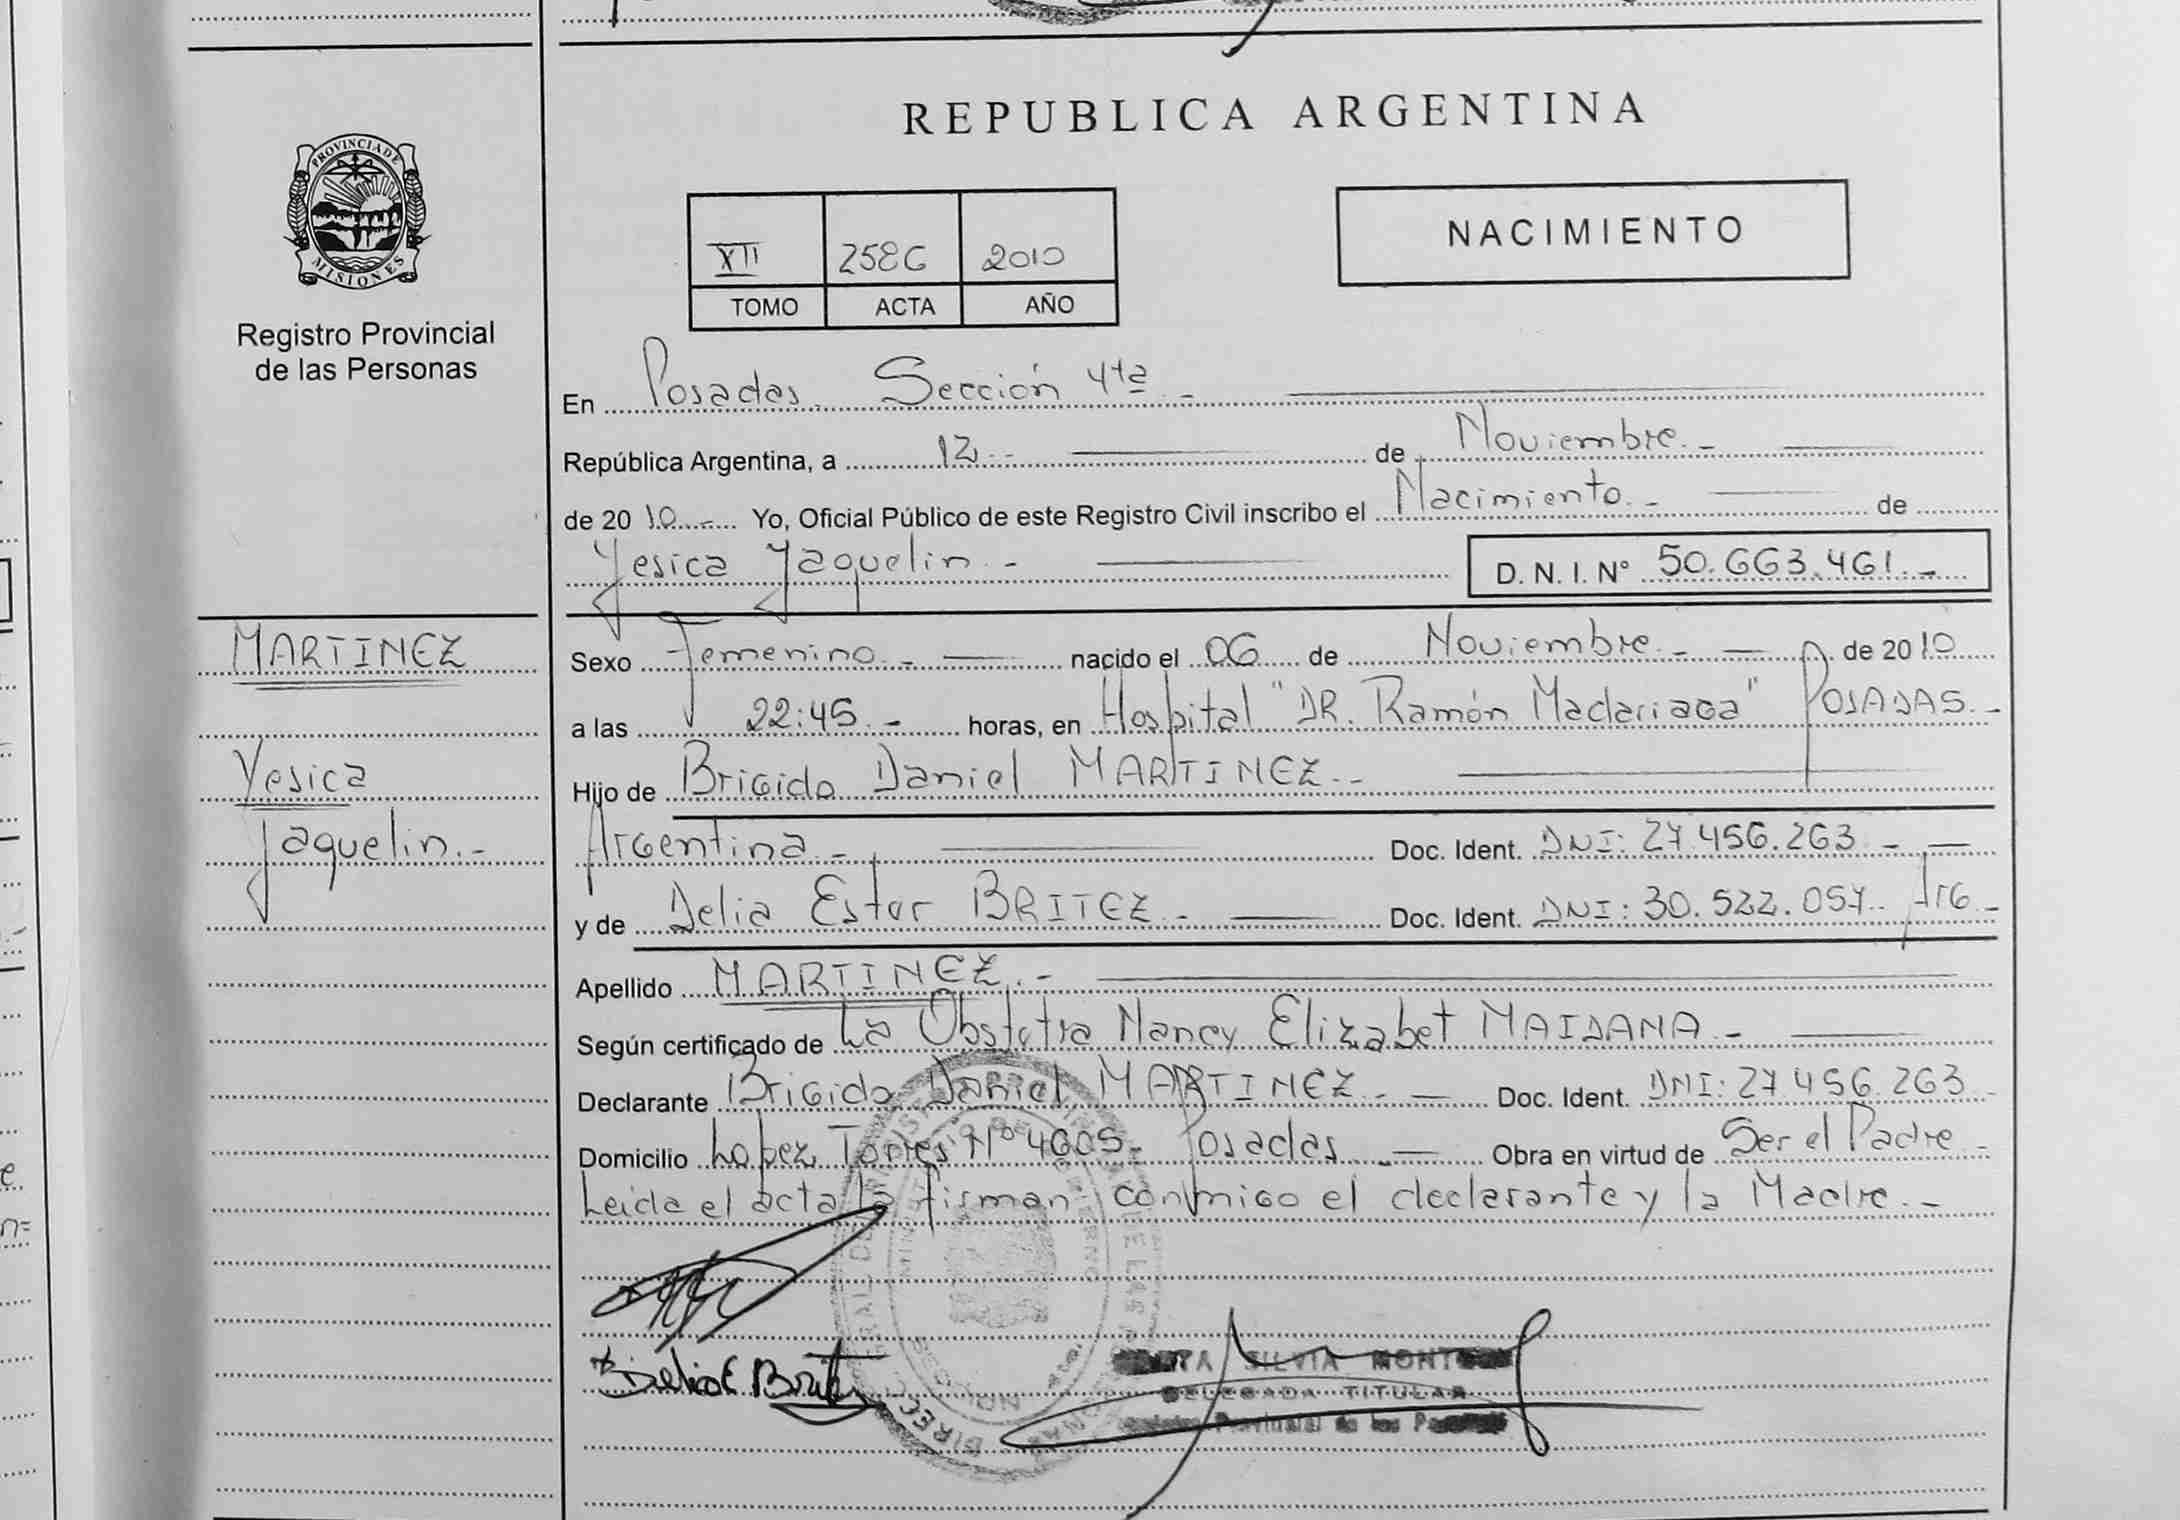 PROVINCIA DE
MISIONES
Registro Provincial
de las Personas
MARTINEZ
Yesica
Jaquelin.-
REPUBLICA ARGENTINA
XII 2586 2010
TOMO ACTA AÑO
NACIMIENTO
En Posadas Sección 4ta.-
República Argentina, a 12.- de Noviembre.-
de 2010.- Yo, Oficial Público de este Registro Civil inscribo el Nacimiento.- de
Yesica Jaquelin.- D. N. I. Nº 50.663.461.-
Sexo Femenino.- nacido el 06 de Noviembre.- de 2010
a las 22:45.- horas, en Hospital "DR. Ramón Madariaga" POSADAS.-
Hijo de Brigido Daniel MARTINEZ.-
Argentina.- Doc. Ident. DNI: 27.456.263.-
y de Delia Ester BRITEZ.- Doc. Ident. DNI: 30.522.057. Arg.-
Apellido MARTINEZ.-
Según certificado de La Obstetra Nancy Elizabet MAIDANA.-
Declarante Brigido Daniel MARTINEZ.- Doc. Ident. DNI: 27.456.263
Domicilio Lopez Torres Nº 4605- Posadas.- Obra en virtud de Ser el Padre.-
Leida el acta la firman conmigo el declarante y la Madre.-
Delia E. Britez
SILVIA
DELEGADA TITULAR
Provincial de las